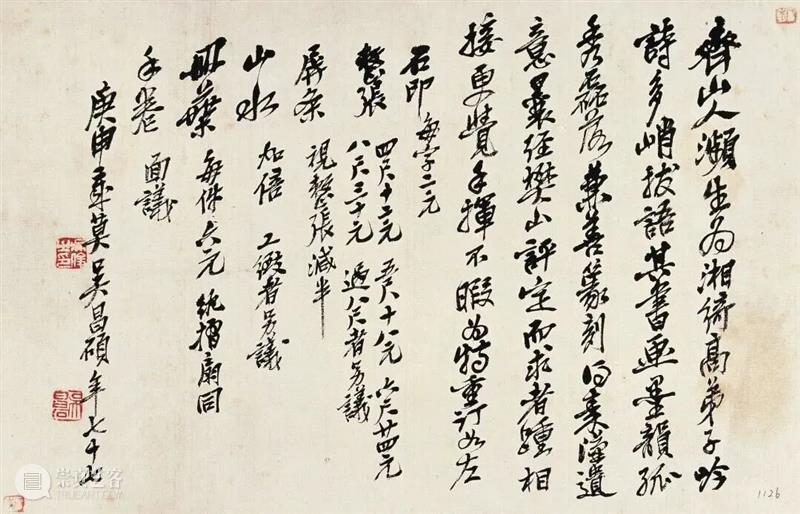 齊山人瀕生為湘綺高弟子吟
詩多峭拔語其書画墨韻孤
秀磊落兼善篆刻得秦漢遺
意曩經樊山評定而求者踵相
接更覺手揮不暇為特重訂如左
石印 每字二元
整張 四尺十二元 五尺十八元 六尺廿四元
八尺三十元 過八尺者另議
屏条 視整張減半
山水 加倍 工緻者另議
册葉 每件六元 紈摺扇同
手卷 面議
庚申歲莫吳昌碩年七十七
1126
崇真艺客
TRUEART.COM